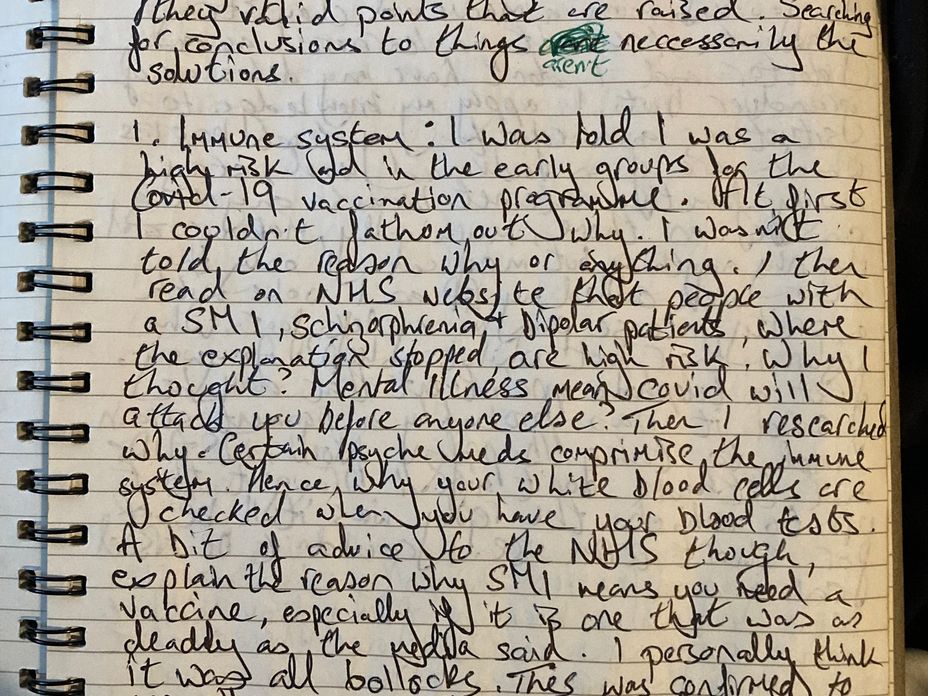 they valid points that are raised. Searching
for, conclusions to things neccessarily the
arent
solutions.
1. Immune system: I was told I was a
high risk and in the early groups for the
Covid-19 vaccination programme. At first
I couldn't fathom out why. I wasn't
told, the reason why or anything. I then
read on NHS website that people with
a SMI, schizorphrenia, + Bipolar patients, where
the explanation stopped, are high risk. Why I
thought? Mental illness mean covid will
attack you before anyone else? Then I researched
why. Certain psyche meds comprimise the immune
system. Hence, why your white blood cells are
checked when you have your blood tests.
A bit of advice to the NHS though,
explain the reason why SMI means you need a
vaccine, especially if it is one that was as
deadly as the media said. I personally think
it was all bollocks. This was confirmed to